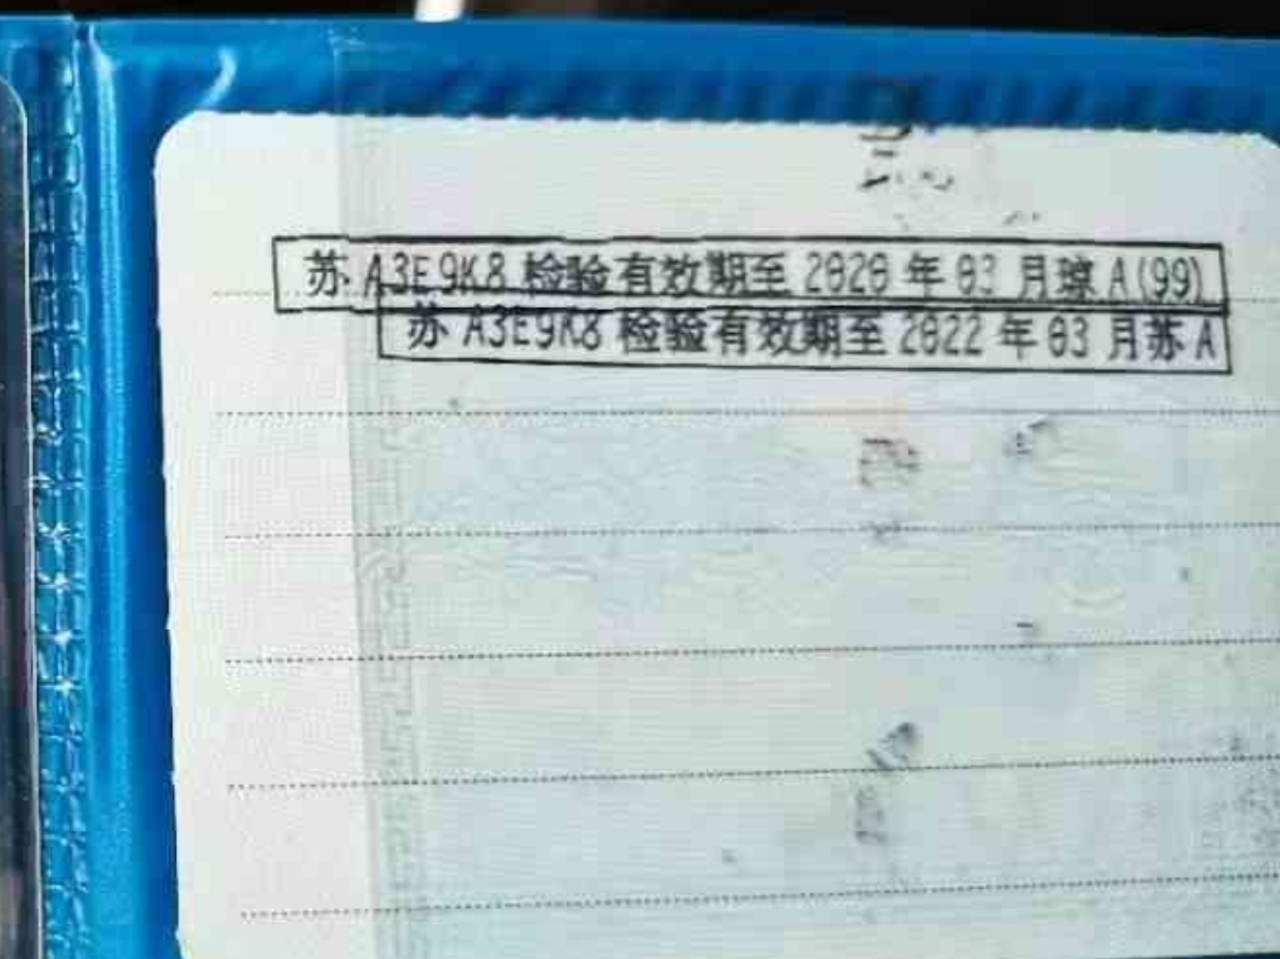 苏A3E9K8检验有效期至2020年03月琼A(99)
苏A3E9K8检验有效期至2022年03月苏A